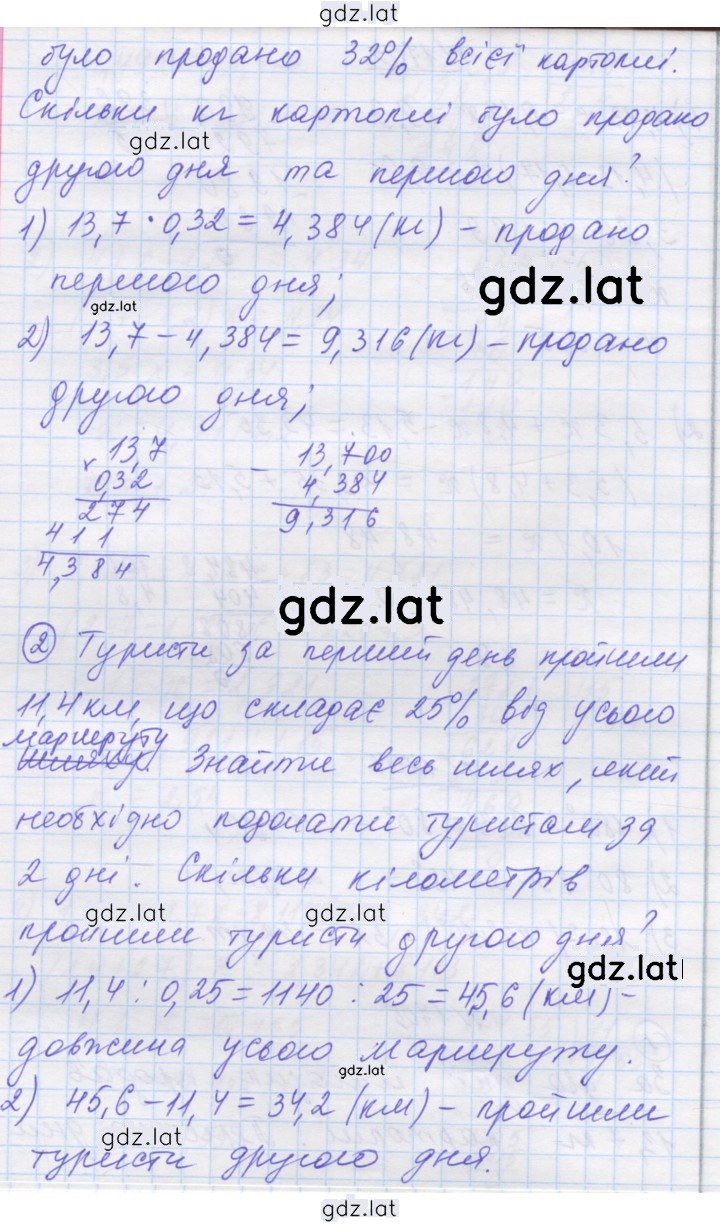 gdz.lat
було продано 32% всієї картоплі.
Скільки кг картоплі було продано
gdz.lat
другого дня та першого дня?
1) 13,7 · 0,32 = 4,384 (кг) – продано
gdz.lat
першого дня;
gdz.lat
2) 13,7 – 4,384 = 9,316 (кг) – продано
другого дня;
13,7 13,700
× 0,32 – 4,384
274 9,316
411
4,384
gdz.lat
2 Туристи за перший день пройшли
11,4 км, що складає 25% від усього
маршруту
Знайти весь шлях, який
необхідно подолати туристам за
2 дні. Скільки кілометрів
gdz.lat gdz.lat
пройшли туристи другого дня?
gdz.lat
1) 11,4 : 0,25 = 1140 : 25 = 45,6 (км) –
довжина усього маршруту.
gdz.lat
2) 45,6 – 11,4 = 34,2 (км) – пройшли
gdz.lat
туристи другого дня.
gdz.lat